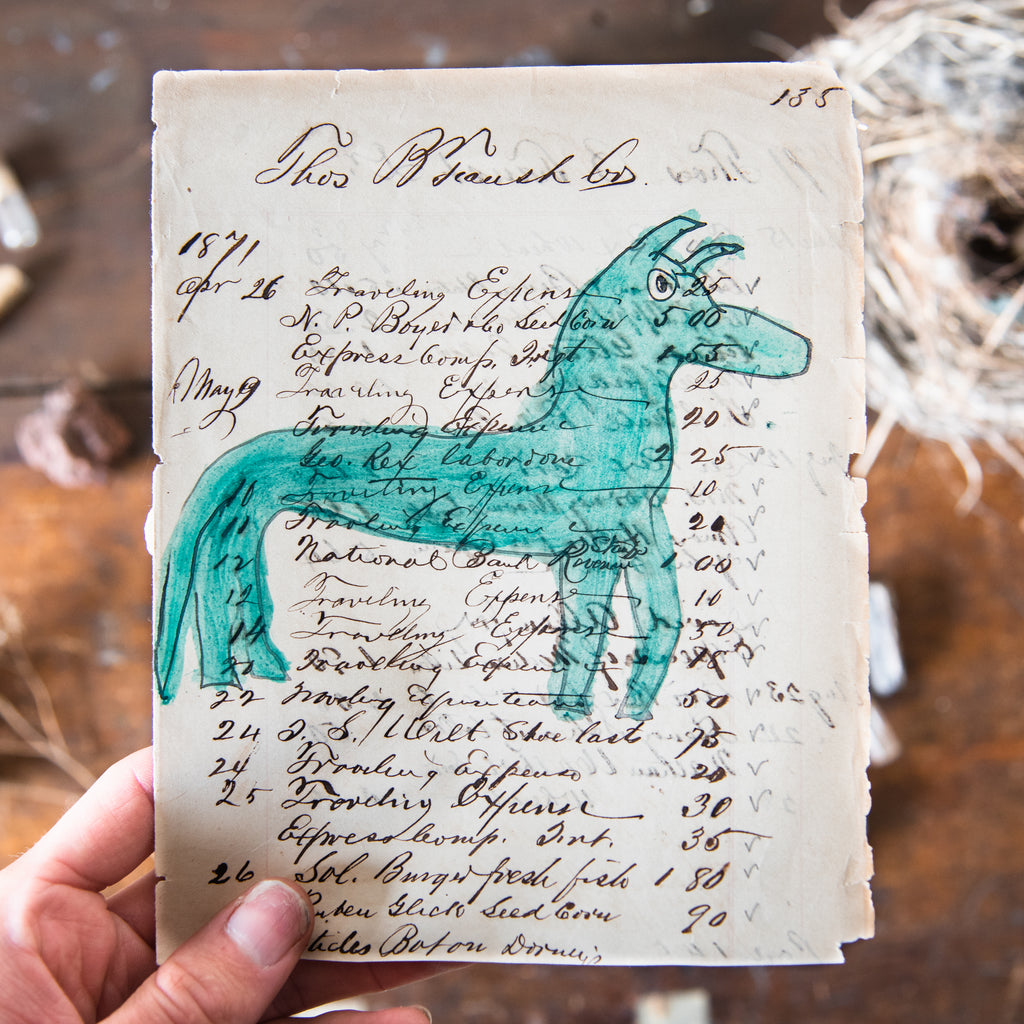 135
Thos
1871
Apr 26 Traveling Expense 25
N. P. Boyer & Co Seed Corn 5 00
Express Comp. 1 55
May 9 Traveling Expense 25
Traveling Expense 20
Geo. Rex labor done 2 25
10 Traveling Expense 10
11 Traveling Expense 20
12 National Bank Revenue Stamps 1 00
12 Traveling Expense 10
14 Traveling Expense 50
Traveling Expense
22 Traveling Expense 50
24 Shoe last 75
24 Traveling Expense 20
25 Traveling Expense 30
Express Comp. 35
26 Sol. Burger fresh fish 1 80
Glick Seed Corn 90